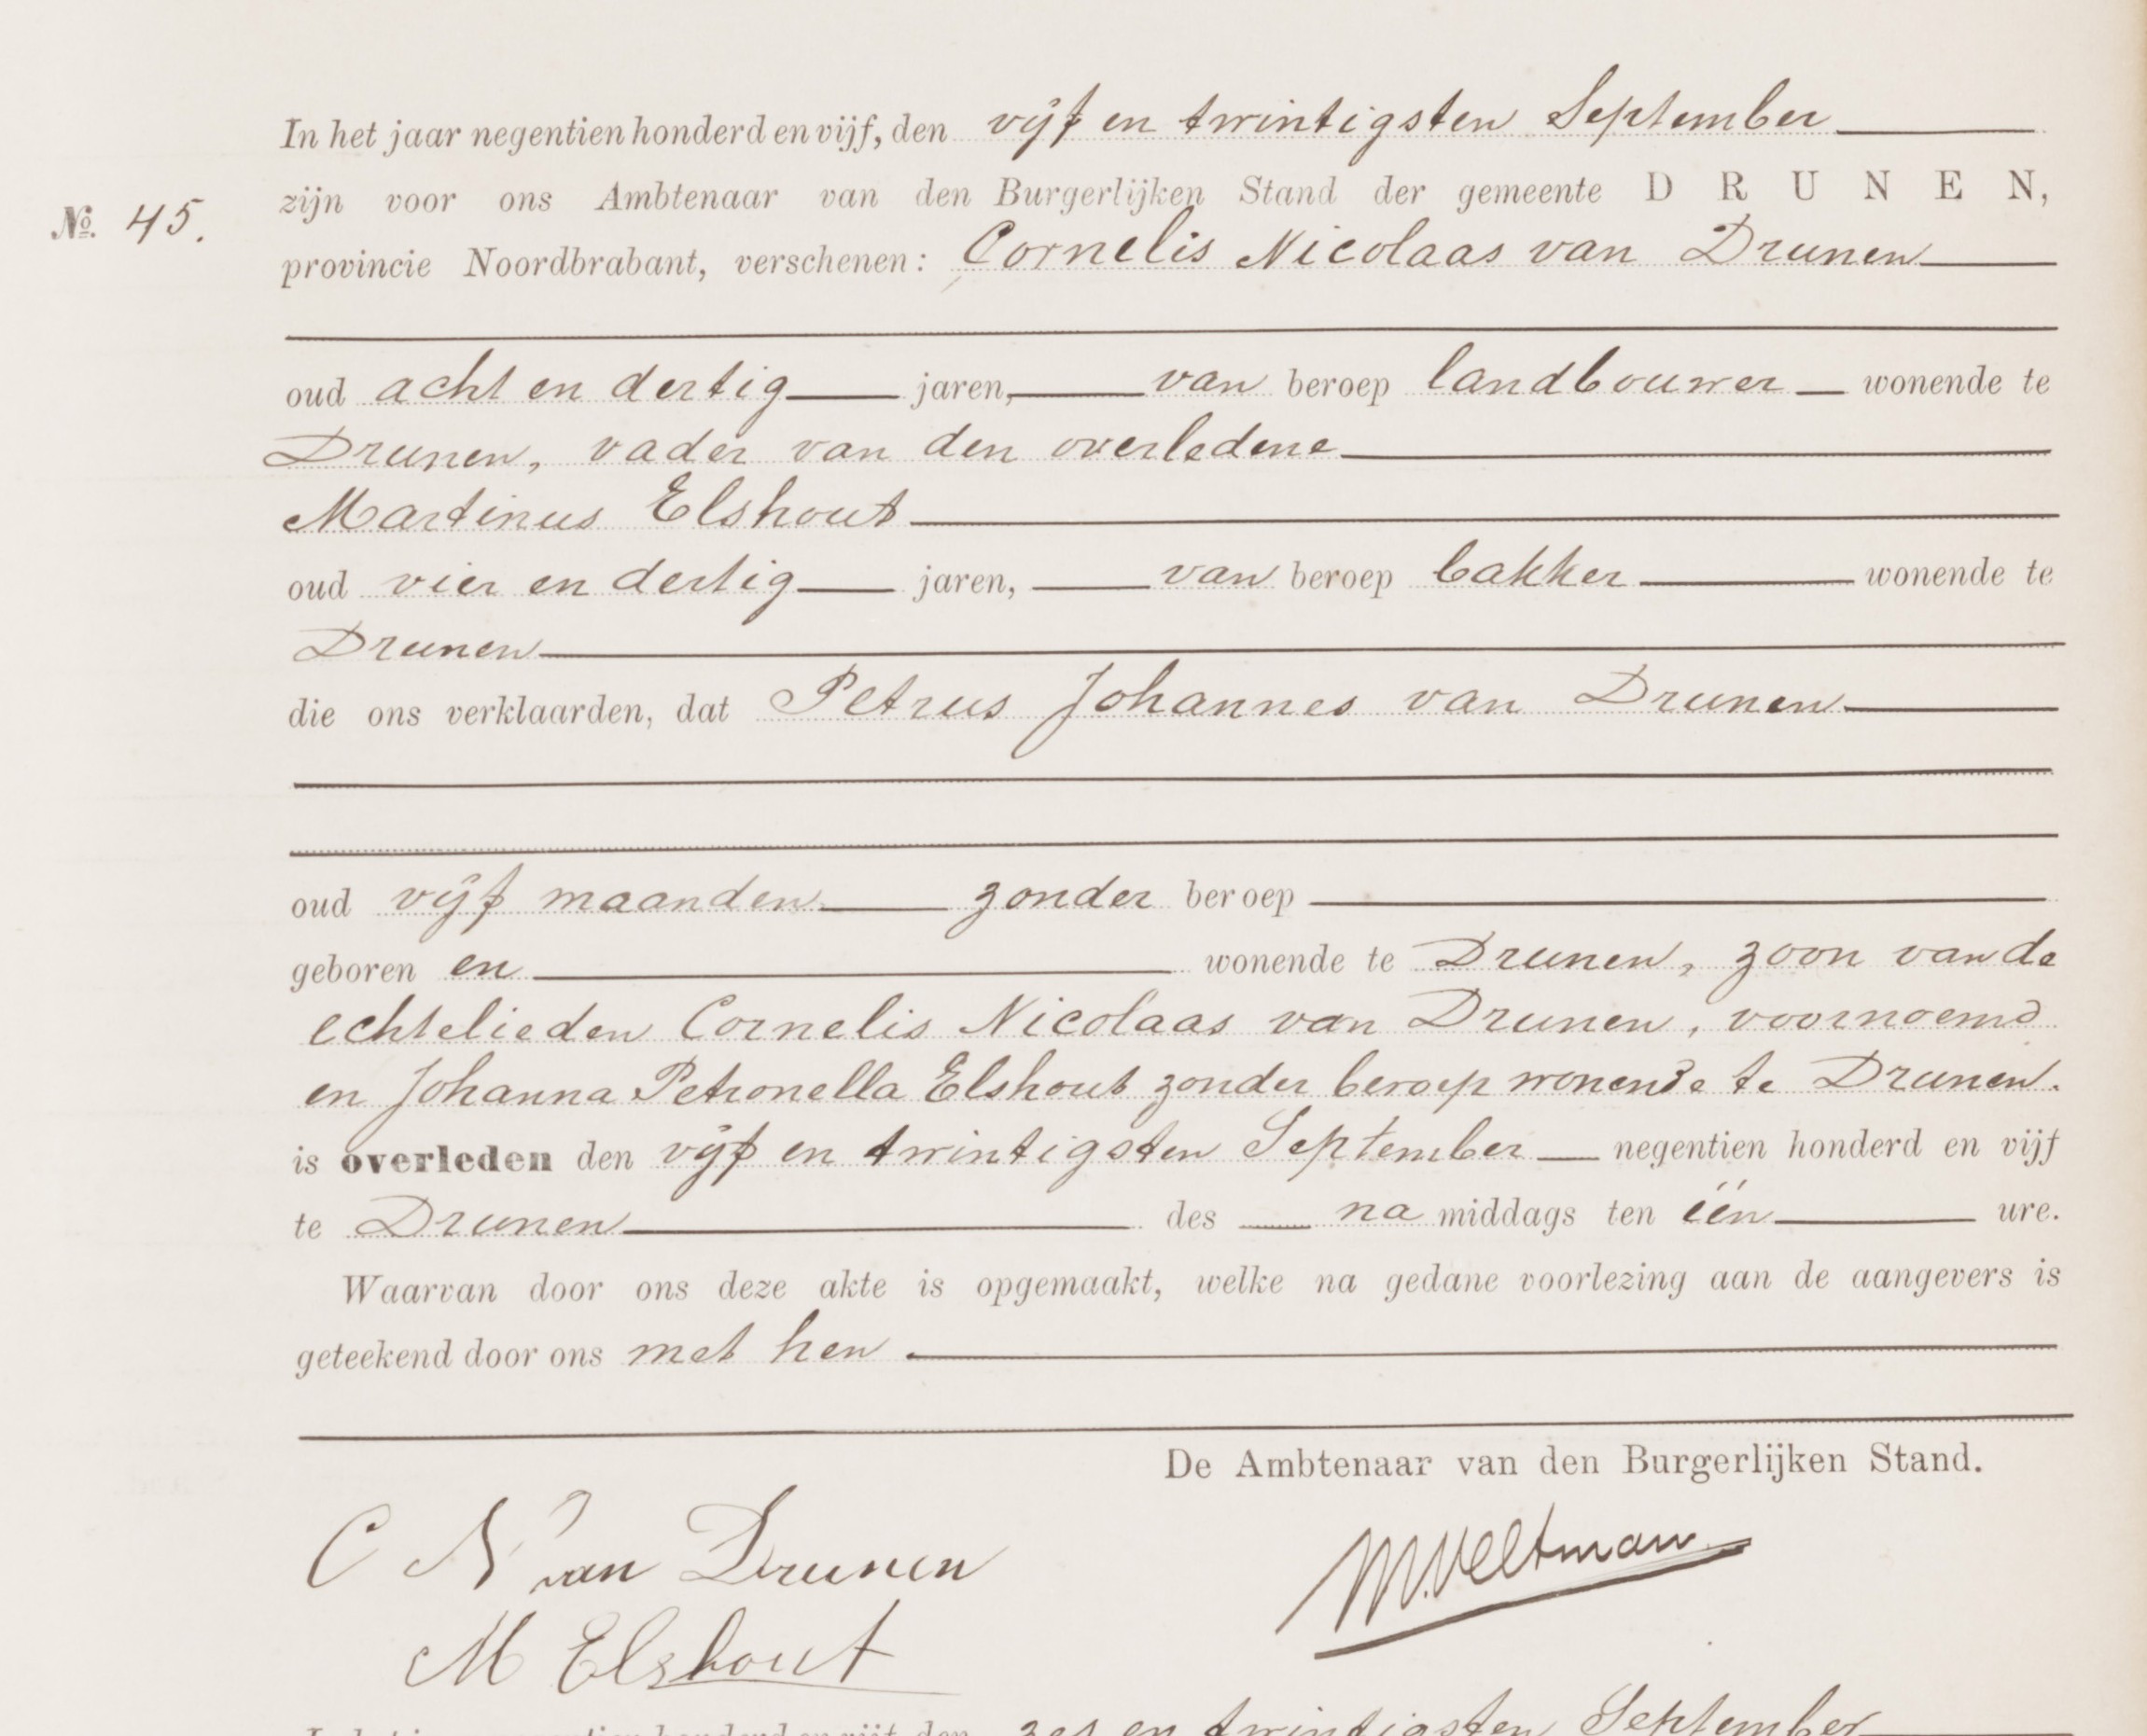 In het jaar negentien honderd en vijf, den vijf en twintigsten September
zijn voor ons Ambtenaar van den Burgerlijken Stand der gemeente DRUNEN,
No. 45.
provincie Noordbrabant, verschenen: Cornelis Nicolaas van Drunen
oud acht en dertig jaren, van beroep landbouwer wonende te
Drunen, vader van den overledene
Martinus Elshout
oud vier en dertig jaren, van beroep bakker wonende te
Drunen
die ons verklaarden, dat Petrus Johannes van Drunen
oud vijf maanden zonder beroep
geboren en wonende te Drunen, zoon van de
echtelieden Cornelis Nicolaas van Drunen, voornoemd
en Johanna Petronella Elshout zonder beroep wonende te Drunen.
is overleden den vijf en twintigsten September negentien honderd en vijf
te Drunen des na middags ten één ure.
Waarvan door ons deze akte is opgemaakt, welke na gedane voorlezing aan de aangevers is
geteekend door ons met hen.
De Ambtenaar van den Burgerlijken Stand.
C N van Drunen
M. Veltman
M Elshout
In het jaar negentien honderd en vijf, den zes en twintigsten September